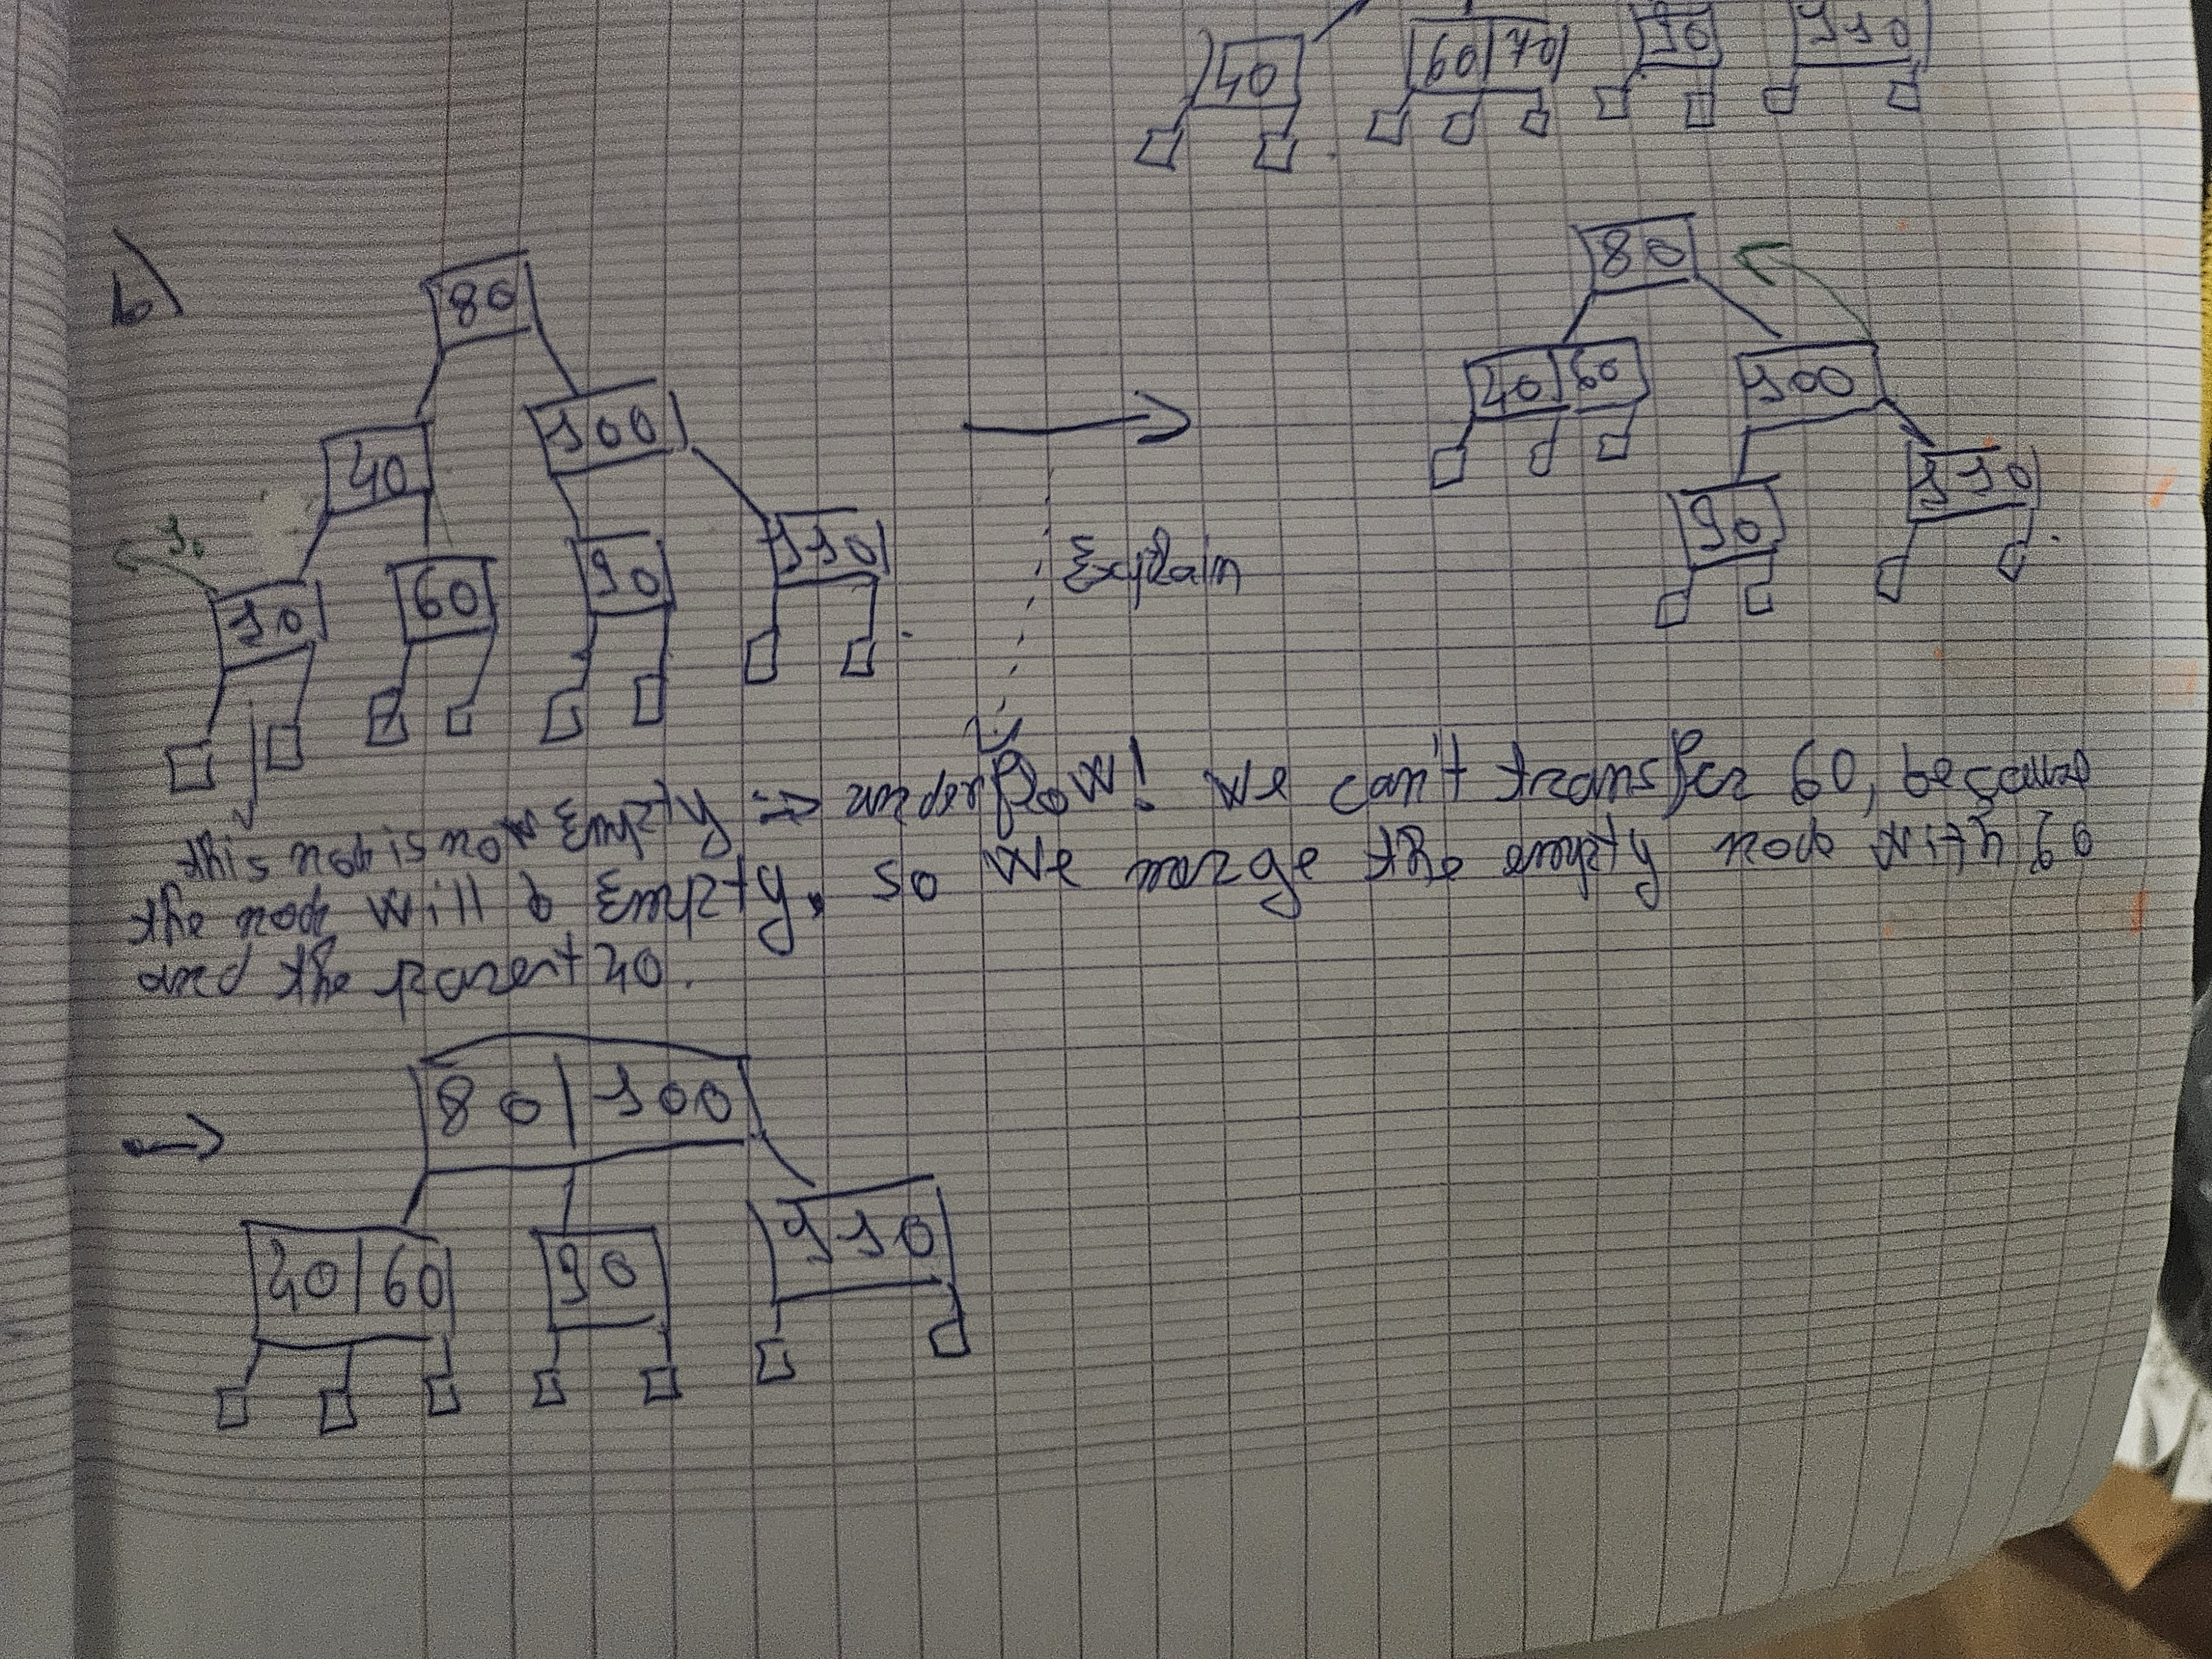 40 60 70 90 110
b)
80
80
40 60 100
40 100
110
90
10
10 60 90 110
Explain
this node is now Empty => underflow! We can't transfer 60, because
the node will b Empty. so we merge the empty node with 60
and the parent 40.
80 100
40 60 90 110